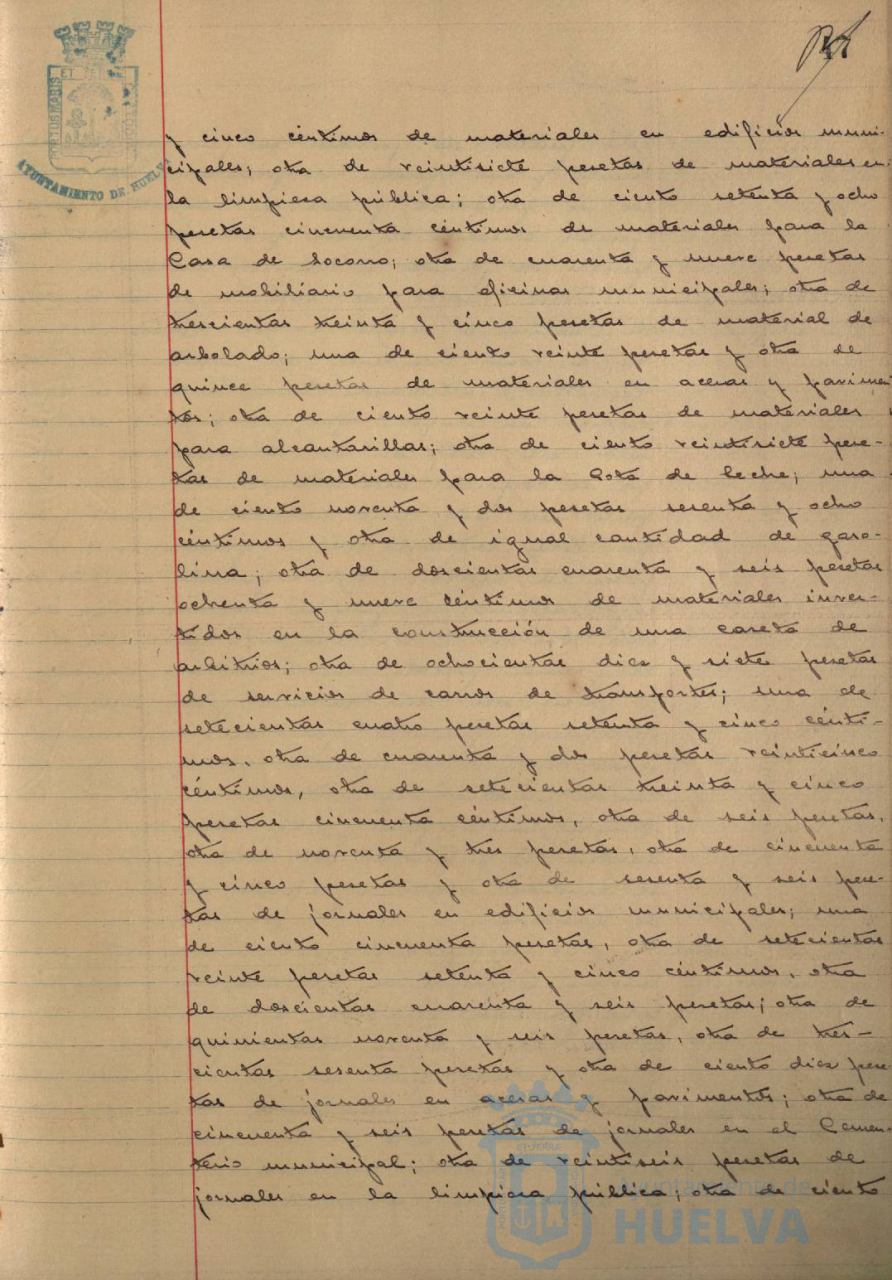 y cinco céntimos de materiales en edificios muni-
cipales; otra de veintisiete pesetas de materiales en
la limpieza pública; otra de ciento setenta y ocho
pesetas cincuenta céntimos de materiales para la
Casa de Socorro; otra de cuarenta y nueve pesetas
de mobiliario para oficinas municipales; otra de
trescientas treinta y cinco pesetas de material de
arbolado; una de ciento veinte pesetas y otra de
quince pesetas de materiales en aceras y pavimen
tos; otra de ciento veinte pesetas de materiales
para alcantarillas; otra de ciento veintisiete pese-
tas de materiales para la Gota de leche; una
de ciento noventa y dos pesetas sesenta y ocho
céntimos y otra de igual cantidad de gaso-
lina; otra de doscientas cuarenta y seis pesetas
ochenta y nueve céntimos de materiales inver-
tidos en la construcción de una caseta de
arbitrios; otra de ochocientas diez y siete pesetas
de servicios de carros de transportes; una de
setecientas cuatro pesetas setenta y cinco cénti-
mos, otra de cuarenta y dos pesetas veinticinco
céntimos, otra de setecientas treinta y cinco
pesetas cincuenta céntimos, otra de seis pesetas,
otra de noventa y tres pesetas, otra de cincuenta
y cinco pesetas y otra de sesenta y seis pese-
tas de jornales en edificios municipales; una
de ciento cincuenta pesetas, otra de setecientas
veinte pesetas setenta y cinco céntimos, otra
de doscientas cuarenta y seis pesetas; otra de
quinientas noventa y seis pesetas, otra de tres-
cientas sesenta pesetas y otra de ciento diez pese
tas de jornales en aceras y pavimentos; otra de
cincuenta y seis pesetas de jornales en el Cemen-
terio municipal; otra de veintiseis pesetas de
jornales en la limpieza pública; otra de ciento
AYUNTAMIENTO DE HUELVA
Ayuntamiento de
HUELVA